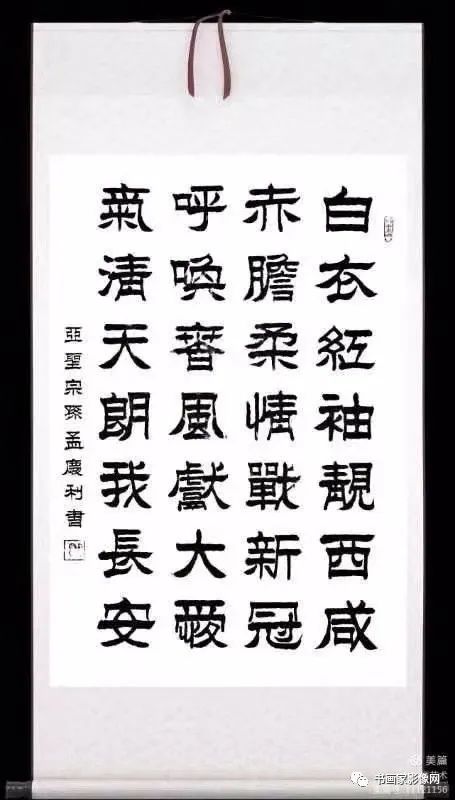 白衣紅袖靚西咸
赤膽柔情戰新冠
呼喚春風獻大愛
氣清天朗我長安
亞聖宗孫孟慶利書
美篇
书画家影像网